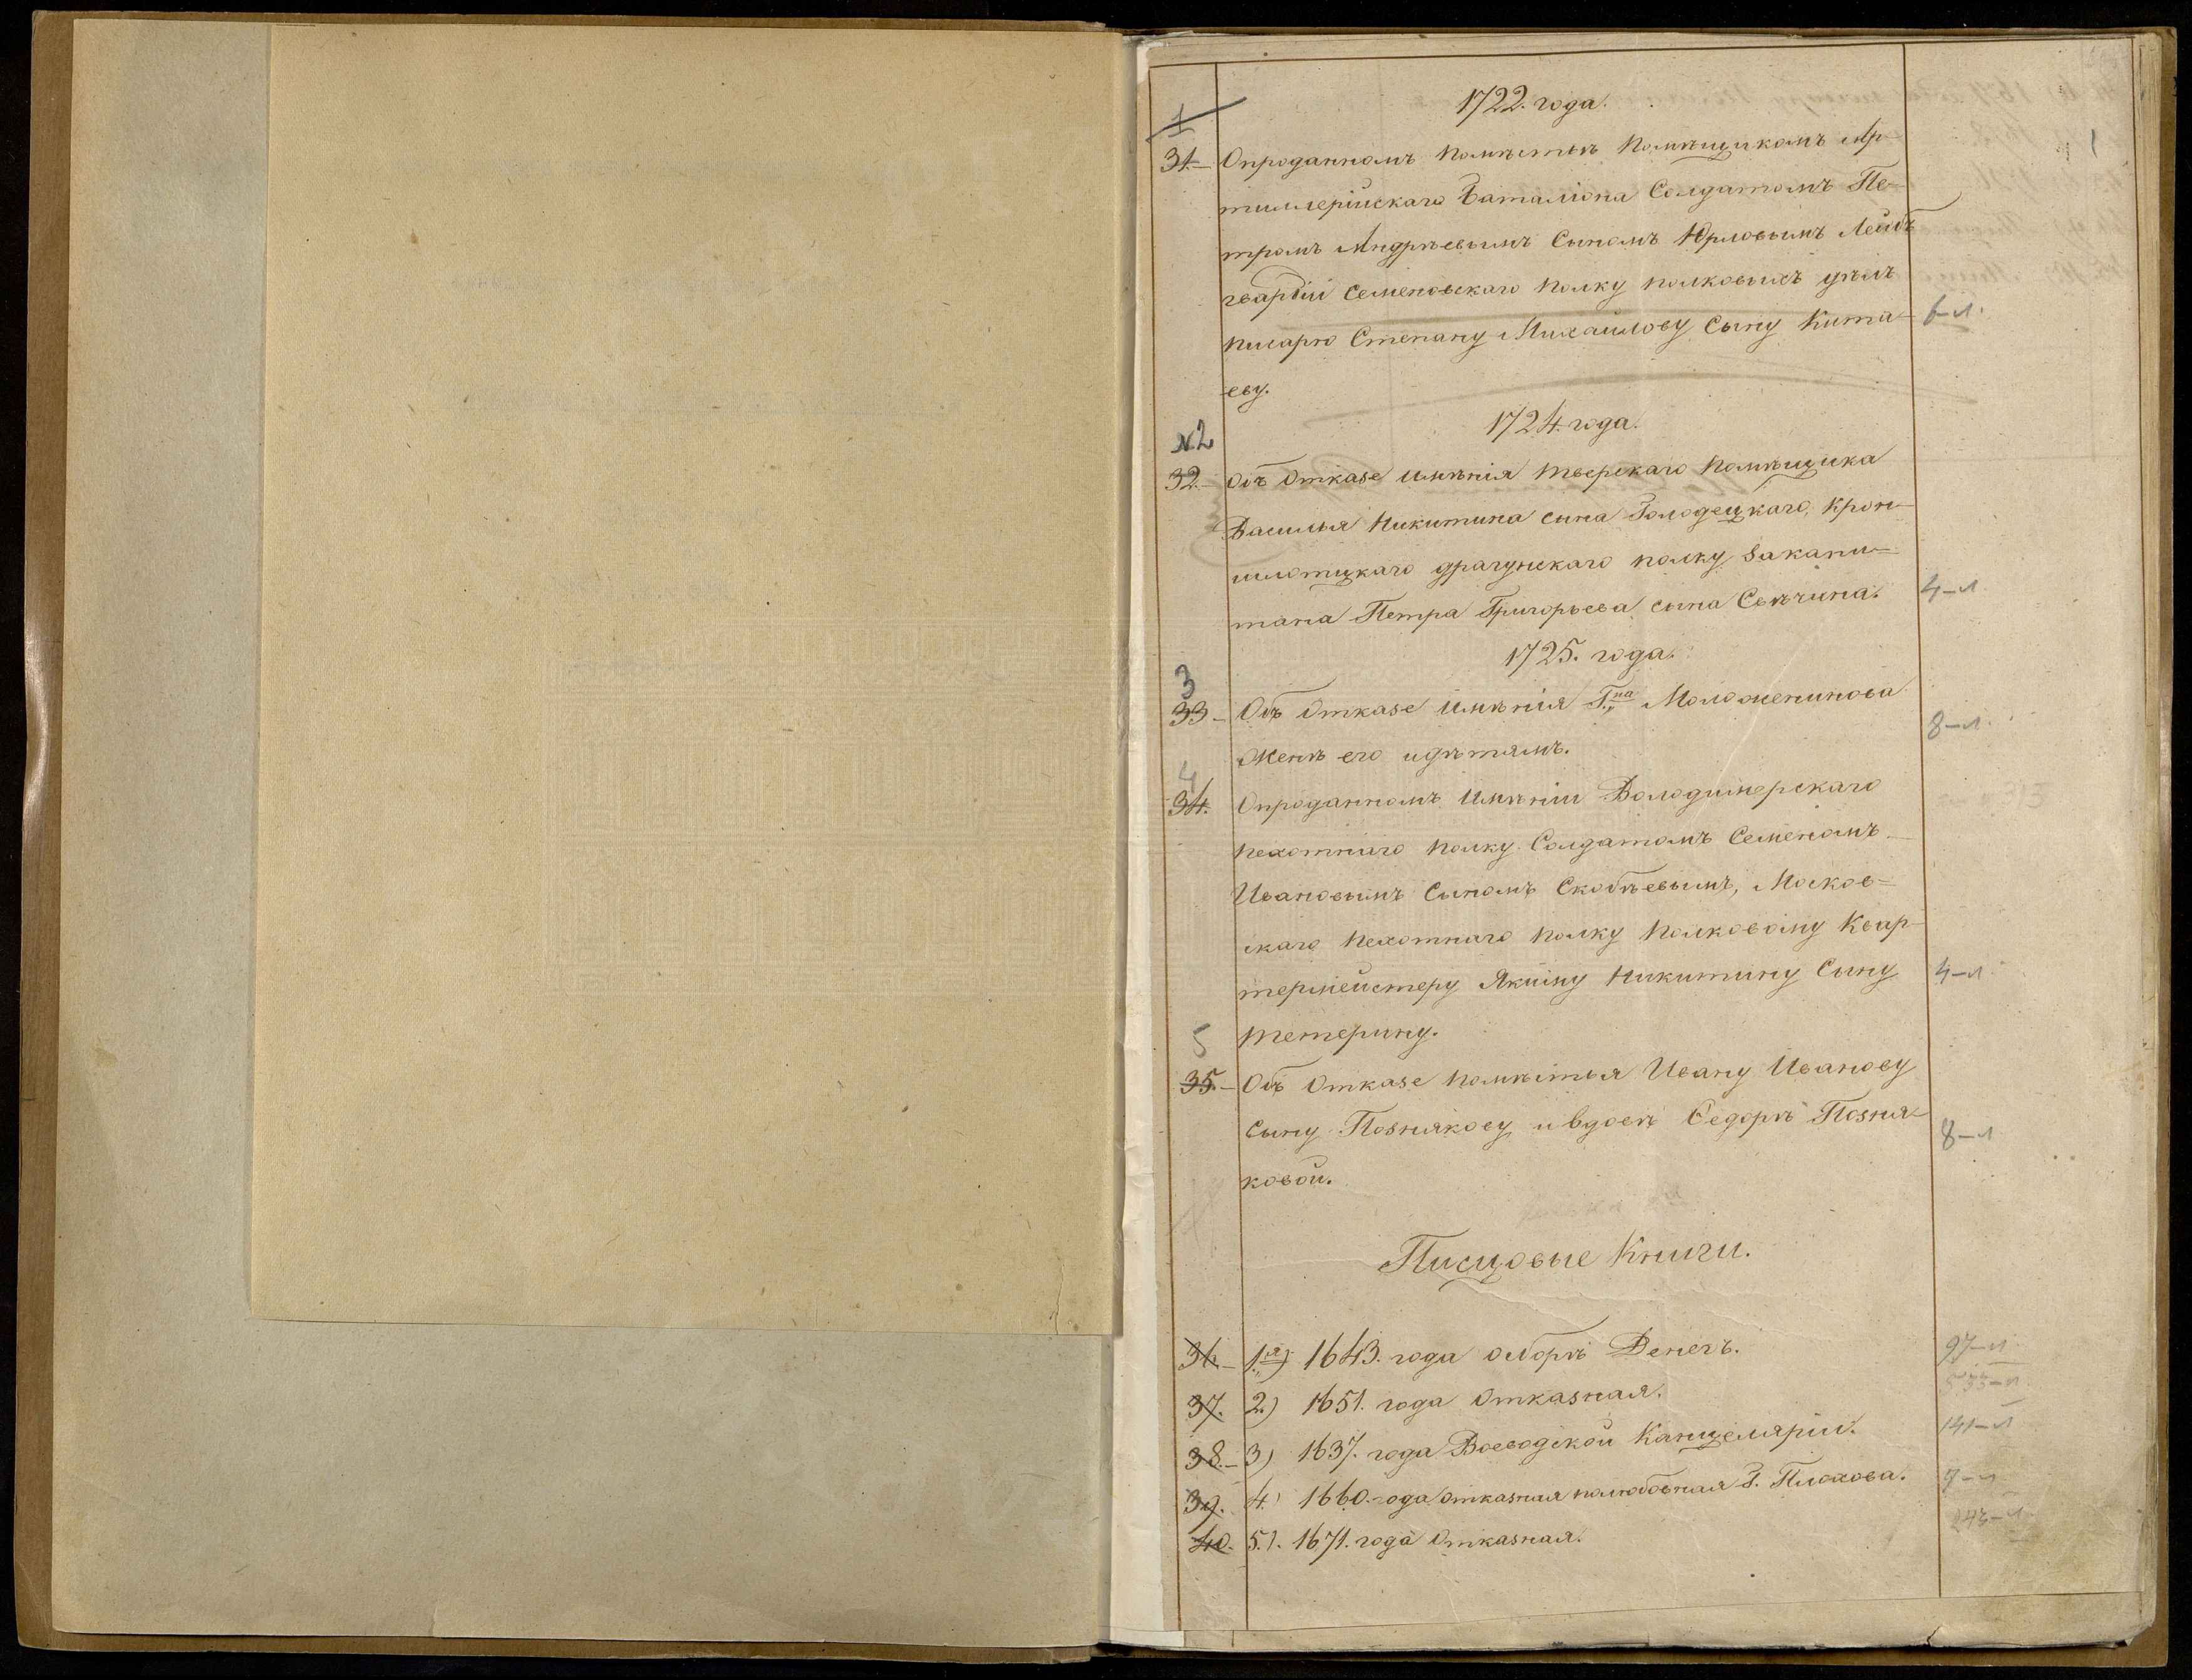 1722. года.
1
1
31. Опроданномъ помѣстьѣ помѣщикомъ Ар-
тиллерійскаго Баталіона Солдатомъ Пе-
тромъ Андрѣевымъ Сыномъ Юрловымъ Лейбъ
гвардіи Семеновскаго полку полковыхъ дѣлъ
писарю Степану Михайлову Сыну Кита- 6-л.
еву.
1724. года.
N.2
32. Объ Отказе имѣнія тверскаго помѣщика
Василья Никитина сына Володецкаго, Крон-
шлотцкаго драгунскаго полку Закапи-
тана Петра Григорьева сына Свѣчина. 4-л.
1725. года.
3
33 - Объ Отказе имѣнія Г.на Моложенинова
Женѣ его идѣтямъ. 8-л.
4
34. Опроданномъ имѣніи Володимерскаго
пехотнаго полку Солдатомъ Семеномъ
Ивановымъ Сыномъ Скобѣевымъ, Москов=
скаго пехотнаго полку полковому Квар-
термейстеру Якиму Никитину Сыну 4-л.
тетерину.
5
35. - Объ Отказе помѣстья Ивану Иванову
Сыну Познякову и вдовѣ Ѳедорѣ Позня- 8-л
ковой.
Писцовые Книги.
36. - 1.я) 1643. года осборѣ Денегъ. 97-л
37. 2.) 1651. года Отказная. 535-л
38. - 3) 1637. года Воеводской Канцеляріи. 141-л
39. 4) 1660. года отказная полюбовная Г. Плохова. 7-л
40. 5.). 1671. года Отказная. 243-л.